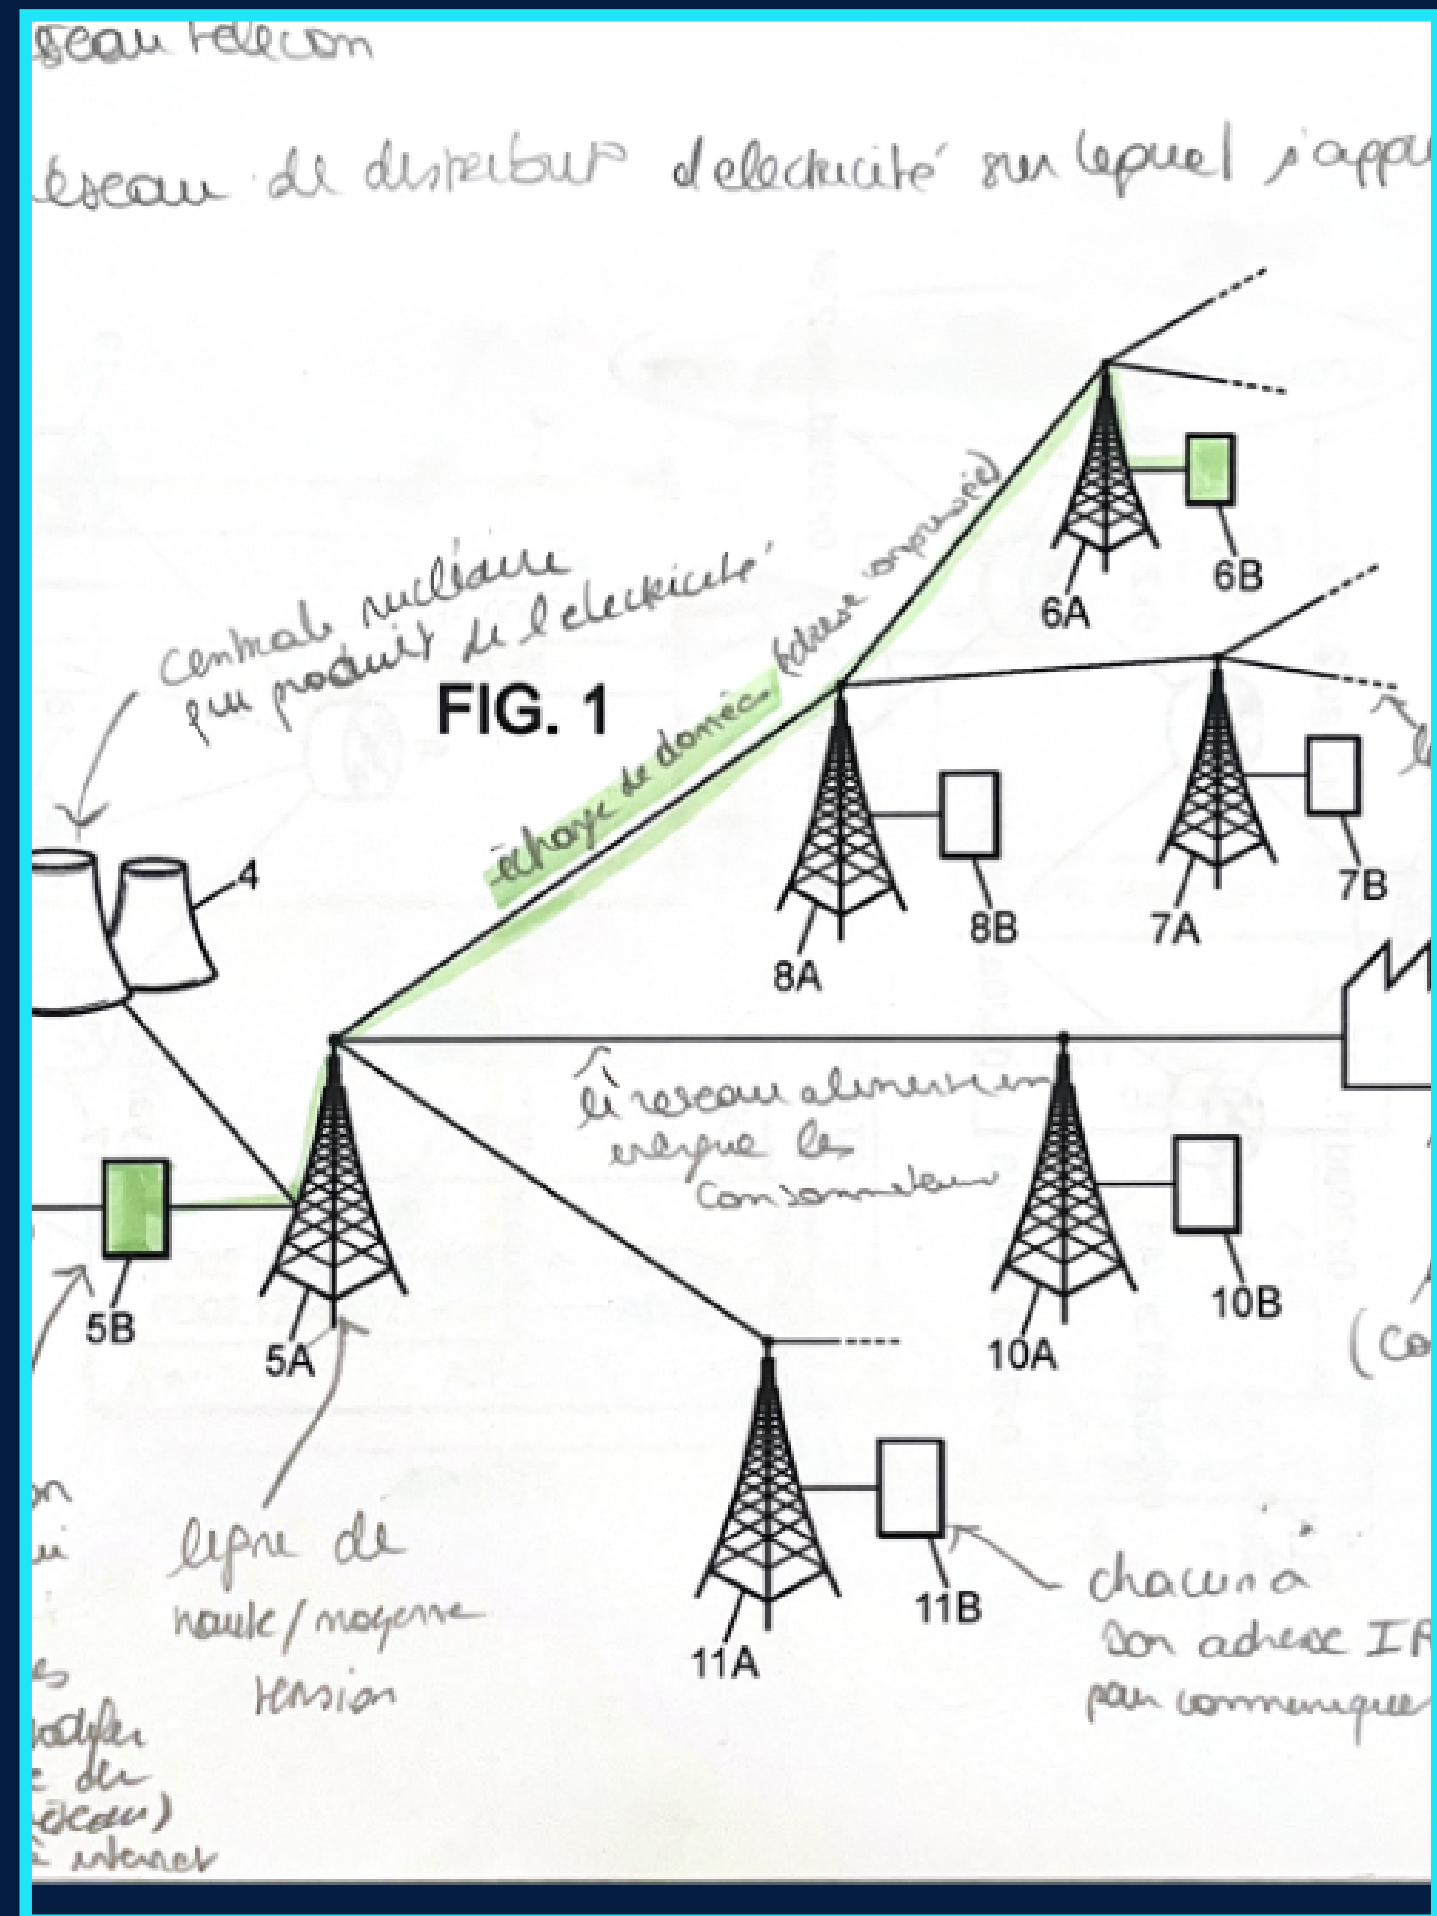 seau telecom
eseau de distribut° d'electricité sur lequel s'appu
centrale nucléaire
qui produit de l'électricité
FIG. 1
échange de données (adresse compressée)
6B
6A
4
8B
8A
7B
7A
le réseau alimente en
énergie les
consommateurs
5B
5A
10B
10A
(co
on
ui
ligne de
haute/moyenne
tension
11B
11A
chacun a
son adresse IP
pour communiquer
es
e du
eseau)
à internet